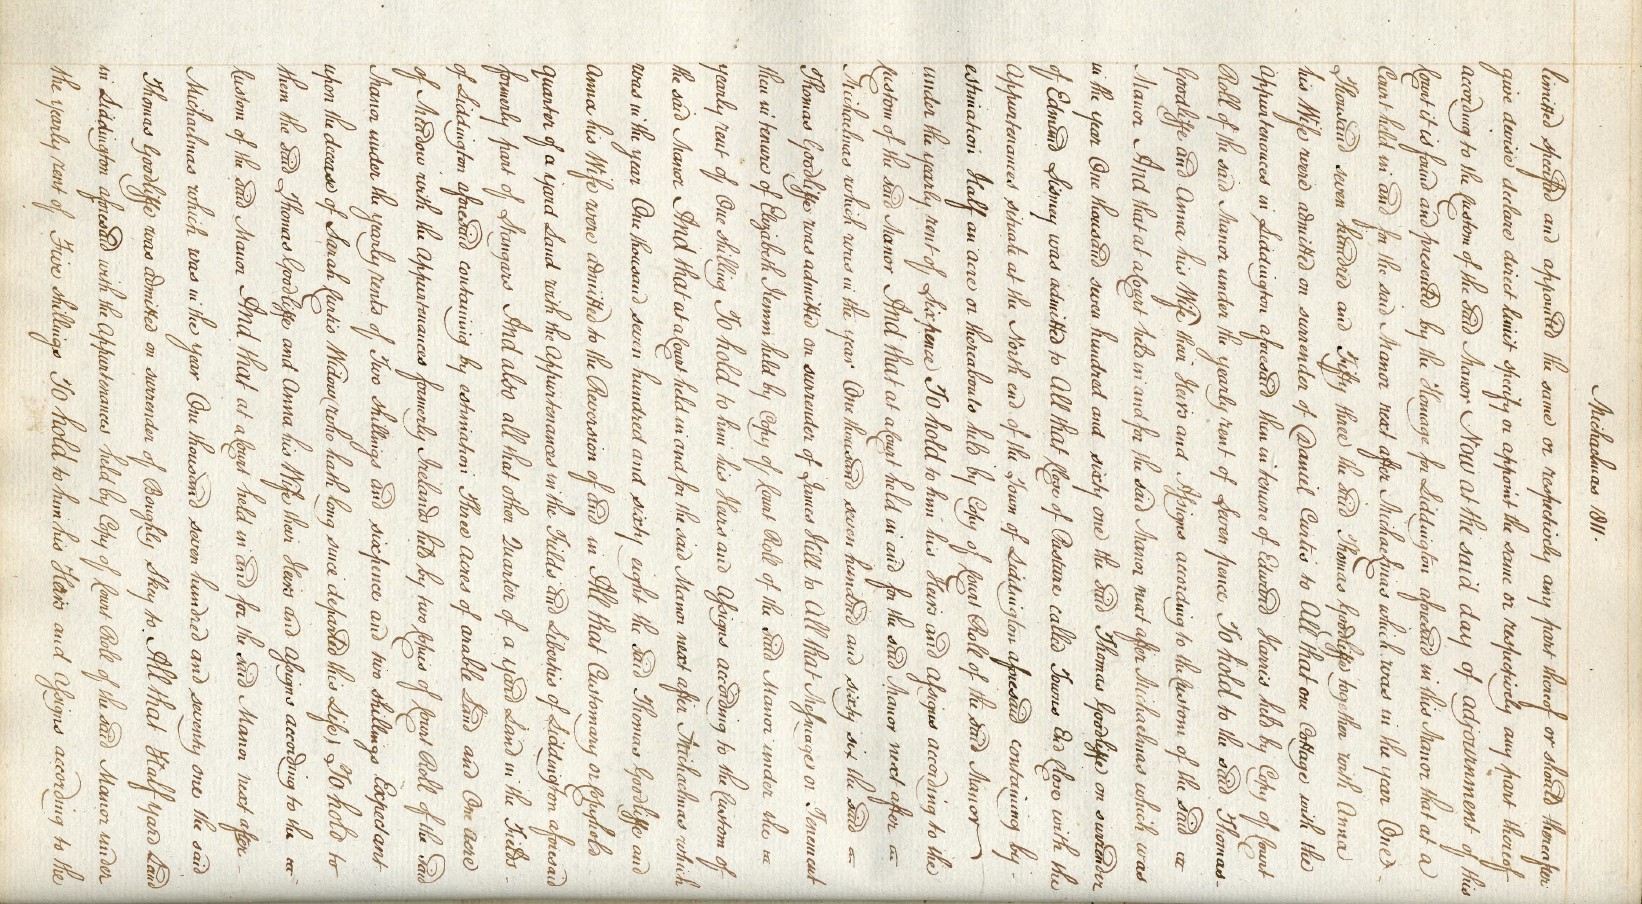 Michaelmas 1811.
limited specified and appointed the same or respectively any part thereof or should thereafter
give devise declare direct limit specify or appoint the same or respectively any part thereof
according to the Custom of the said Manor Now at the said day of adjournment of this
Court it is found and presented by the Homage for Liddington aforesaid in this Manor that at a
Court held in and for the said Manor next after Michaelmas which was in the year One
Thousand seven hundred and Fifty three the said Thomas Goodliffe together with Anna
his Wife were admitted on surrender of Daniel Curtis to All that one Cottage with the
Appurtenances in Liddington aforesaid then in tenure of Edward Harris held by Copy of Court
Roll of the said Manor under the yearly rent of Seven pence To hold to the said Thomas
Goodliffe and Anna his Wife their Heirs and Assigns according to the Custom of the said
Manor And that at a Court held in and for the said Manor next after Michaelmas which was
in the year One thousand seven hundred and sixty one the said Thomas Goodliffe on surrender
of Edmund Sismey was admitted to All that Close of Pasture called Towns End Close with the
Appurtenances situate at the North end of the Town of Liddington aforesaid containing by
estimation Half an acre or thereabouts held by Copy of Court Roll of the said Manor
under the yearly rent of Sixpence To hold to him his Heirs and Assigns according to the
Custom of the said Manor And that at a Court held in and for the said Manor next after
Michaelmas which was in the year One thousand seven hundred and sixty six the said
Thomas Goodliffe was admitted on surrender of James Hill to All that Messuage or Tenement
then in tenure of Elizabeth held by Copy of Court Roll of the said Manor under the
yearly rent of One shilling To hold to him his Heirs and Assigns according to the Custom of
the said Manor And that at a Court held in and for the said Manor next after Michaelmas which
was in the year One thousand seven hundred and sixty eight the said Thomas Goodliffe and
Anna his Wife were admitted to the Reversion of and in All that Customary or Copyhold
quarter of a yard Land with the Appurtenances in the Fields and Liberties of Liddington aforesaid
formerly part of Mangars And also all that other Quarter of a yard Land in the Fields
of Liddington aforesaid containing by estimation Three acres of arable Land and One acre
of Meadow with the Appurtenances formerly Irelands held by two Copies of Court Roll of the said
Manor under the yearly rents of Two shillings and sixpence and two shillings Expectant
upon the decease of Sarah Curtis Widow (who hath long since departed this Life) To hold to
them the said Thomas Goodliffe and Anna his Wife their Heirs and Assigns according to the
Custom of the said Manor And that at a Court held in and for the said Manor next after
Michaelmas which was in the year One thousand seven hundred and seventy one the said
Thomas Goodliffe was admitted on surrender of Broughly Skew to All that Half yard Land
in Liddington aforesaid with the Appurtenances held by Copy of Court Roll of the said Manor under
the yearly rent of Five shillings To hold to him his Heirs and Assigns according to the